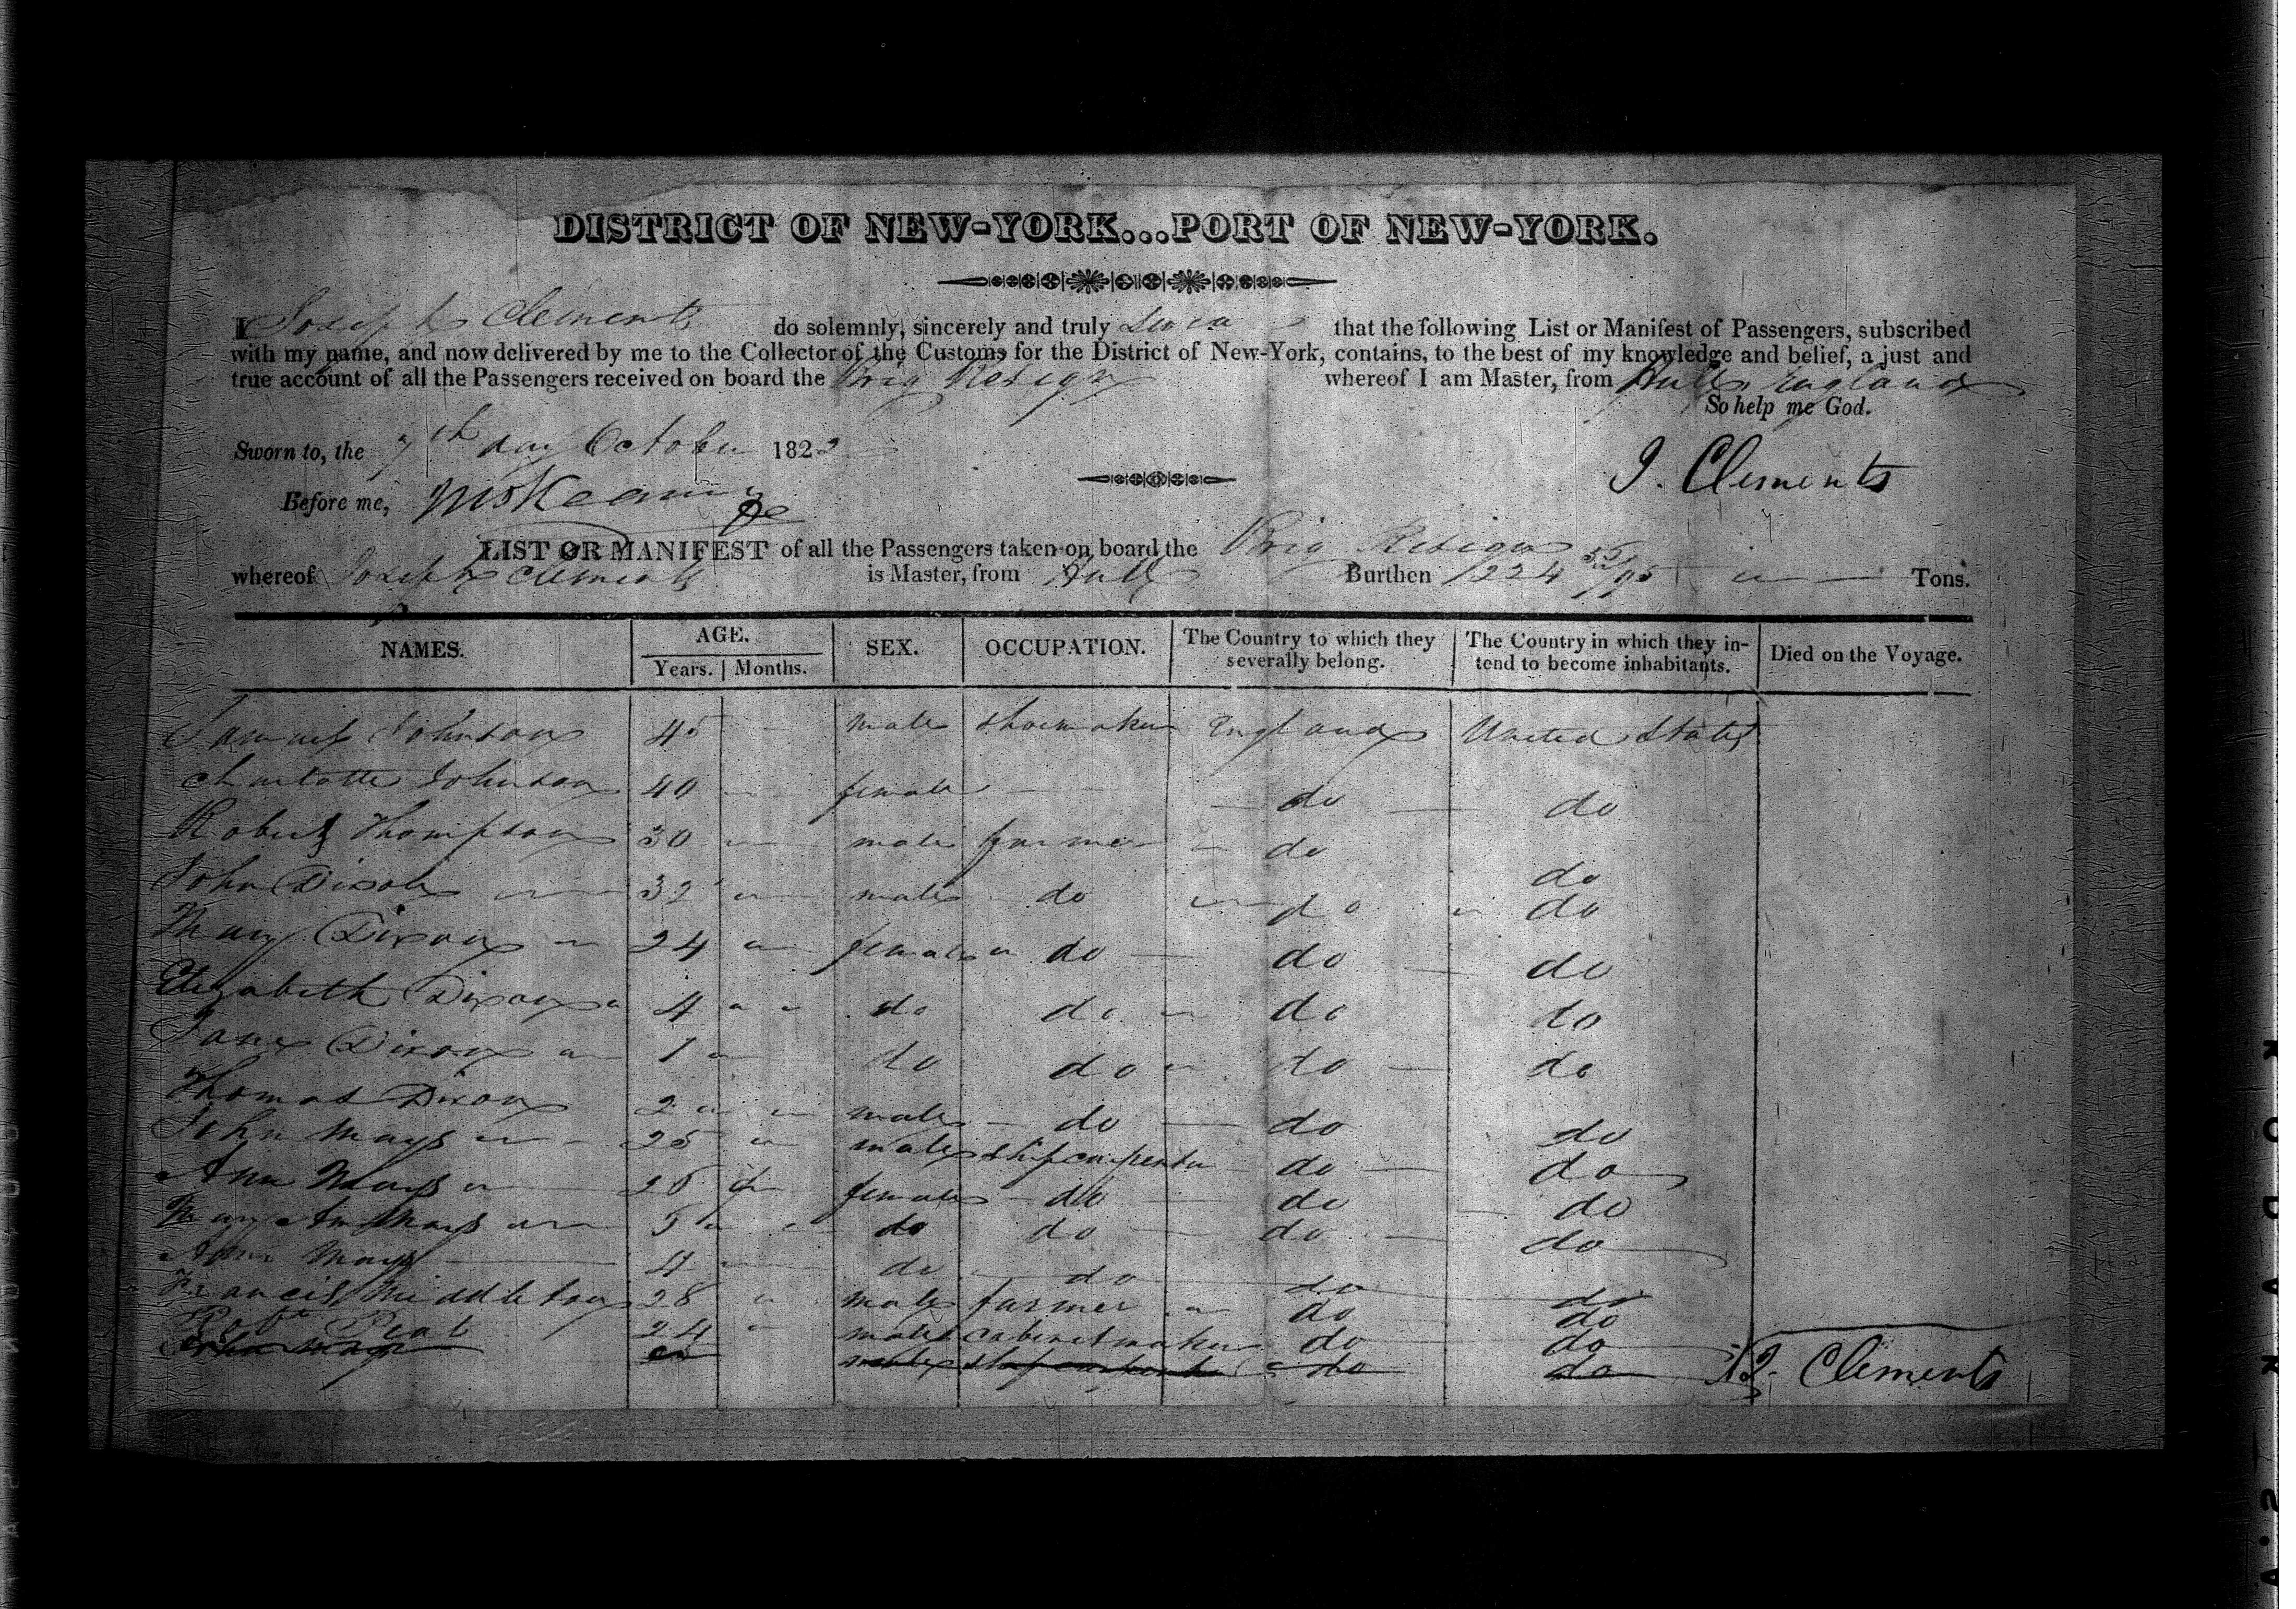 DISTRICT OF NEW-YORK...PORT OF NEW-YORK.
I Joseph Clements do solemnly, sincerely and truly Swear that the following List or Manifest of Passengers, subscribed
with my name, and now delivered by me to the Collector of the Customs for the District of New-York, contains, to the best of my knowledge and belief, a just and
true account of all the Passengers received on board the Brig whereof I am Master, from Hull England
So help me God.
Sworn to, the 7th day October 1822
J. Clements
Before me,
LIST OR MANIFEST of all the Passengers taken on board the Brig
whereof Joseph Clements is Master, from Hull Burthen 224 /95 Tons.
NAMES. AGE. Years. Months. SEX. OCCUPATION. The Country to which they severally belong. The Country in which they intend to become inhabitants. Died on the Voyage.
Samuel Johnson 45 male shoemaker England United States
Charlotte Johnson 40 female do do
Robert Thompson 30 male farmer do do
John Dixon 32 male do do do
Mary Dixon 24 female do do do
Elizabeth Dixon 4 do do do do
Jane Dixon 1 do do do do
Thomas Dixon 2 male do do do
John Mays 25 male ship carpenter do do
Ann Mays 26 female do do do
Mary Ann Mays 5 do do do do
Ann Mays 4 do do do do
Francis Middleton 28 male farmer do do
Robt Peat 24 male cabinet maker do do
John Mays male ship carpenter do do
J. Clements